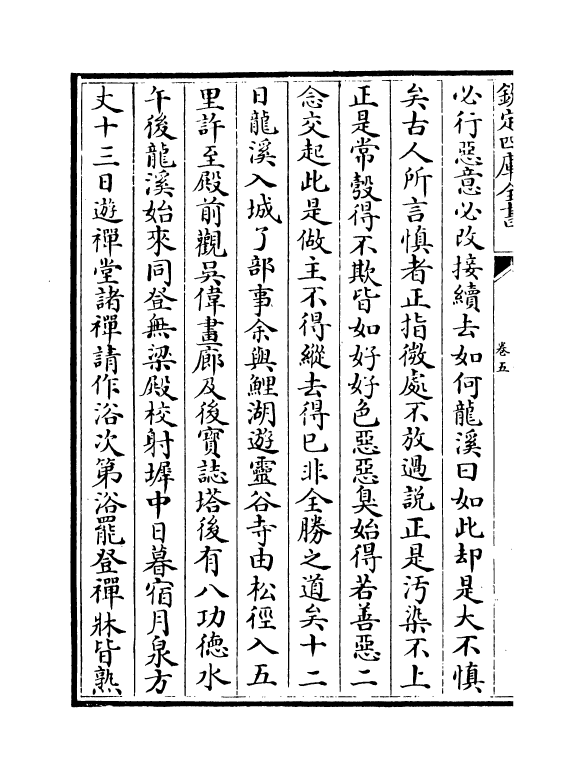 欽定四庫全書
卷五
必行惡意必改接續去如何龍溪曰如此却是大不慎
矣古人所言慎者正指微處不放過說正是汚染不上
正是常彀得不欺皆如好好色惡惡臭始得若善惡二
念交起此是做主不得縱去得已非全勝之道矣十二
日龍溪入城了部事余與鯉湖遊靈谷寺由松徑入五
里許至殿前觀吳偉畫廊及後寶誌塔後有八功德水
午後龍溪始來同登無梁殿校射墀中日暮宿月泉方
丈十三日遊禪堂諸禪請作浴次第浴罷登禪牀皆熟